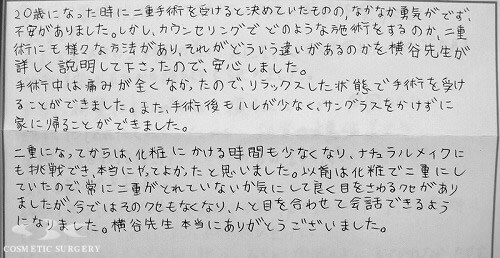 20歳になった時に二重手術を受けると決めていたものの,なかなか勇気がでず、
不安がありました。しかし、カウンセリングでどのような施術をするのか、二重
術にも様々な方法があり、それがどういう違いがあるのかを横谷先生が
詳しく説明して下さったので、安心しました。
手術中は痛みが全くなかったので、リラックスした状態で手術を受け
ることができました。また、手術後もハレが少なく、サングラスをかけずに
家に帰ることができました。
二重になってからは、化粧にかける時間も少なくなり、ナチュラルメイクに
も挑戦でき、本当にやってよかったと思いました。以前は化粧で二重にし
ていたので、常に二重がとれていないか気にして良く目をさわるクセがあり
ましたが、今ではそのクセもなくなり、人と目を合わせて会話できるよう
になりました。横谷先生本当にありがとうございました。
COSMETIC SURGERY